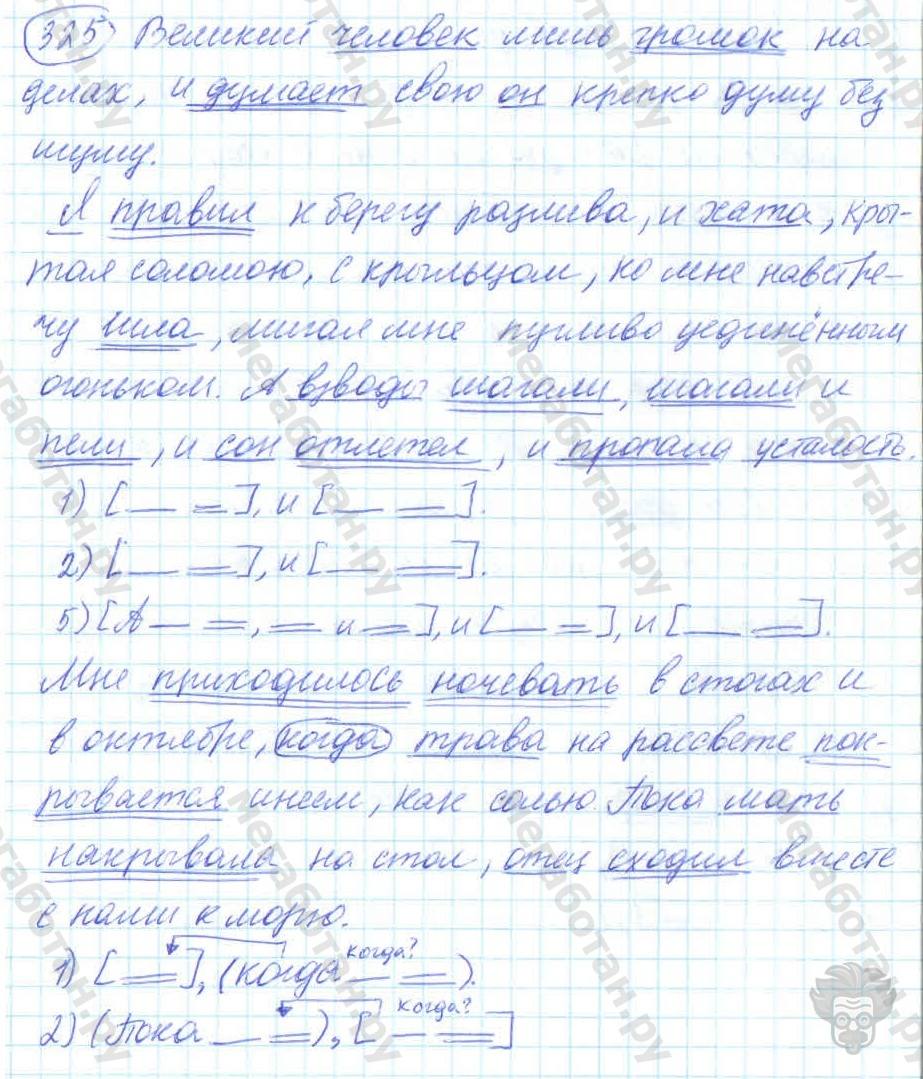 325) Великий человек лишь громок на
делах, и думает свою он крепко думу без
шуму.
Я правил к берегу разлива, и хата, кры-
тая соломою, с крыльцом, ко мне навстре-
чу шла, мигая мне пугливо уединённым
огоньком. А взводы шагали, шагали и
пели, и сон отлетел, и пропала усталость.
1) [__ =], и [__ =].
2) [__ =], и [__ =].
5) [А __ =, = и =], и [__ =], и [__ =].
Мне приходилось ночевать в стогах и
в октябре, когда трава на рассвете пок-
рывается инеем, как солью. Пока мать
накрывала на стол, отец сходил вместе
с нами к морю.
когда?
1) [=], (когда __ =).
когда?
2) (Пока __ =), [__ =]
мегаботан.ру